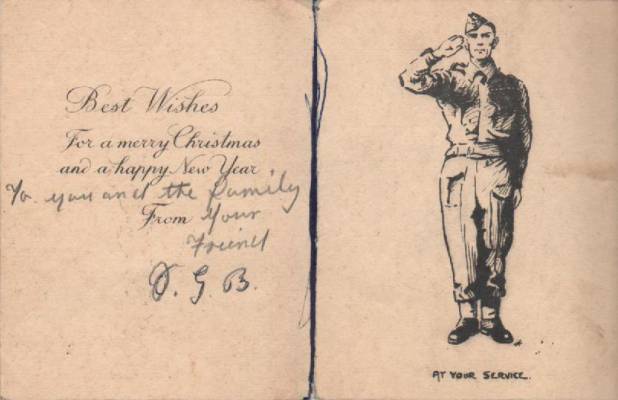 Best Wishes
For a merry Christmas
and a happy New Year
To you and the family
From Your
Friend
D. G. B.
AT YOUR SERVICE.